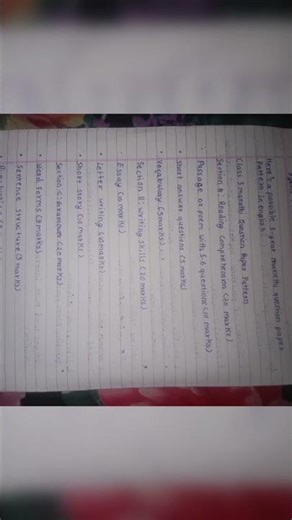 Here's a possible 3-year marathi question paper
Pattern in english
Class 3 marathi Question Paper Pattern
Section A: Reading Comprehension (20 marks)
Passage or poem with 5-6 questions (10 marks)
• short answer questions (5 marks)
• Vocabulary (5 marks)
Section B: writing skills (30 marks)
Essay (10 marks)
• Letter writing (10 marks)
• short story (10 marks)
Section C: Grammar (20 marks)
• Word forms (5 marks)
• Sentence structure (5 marks)